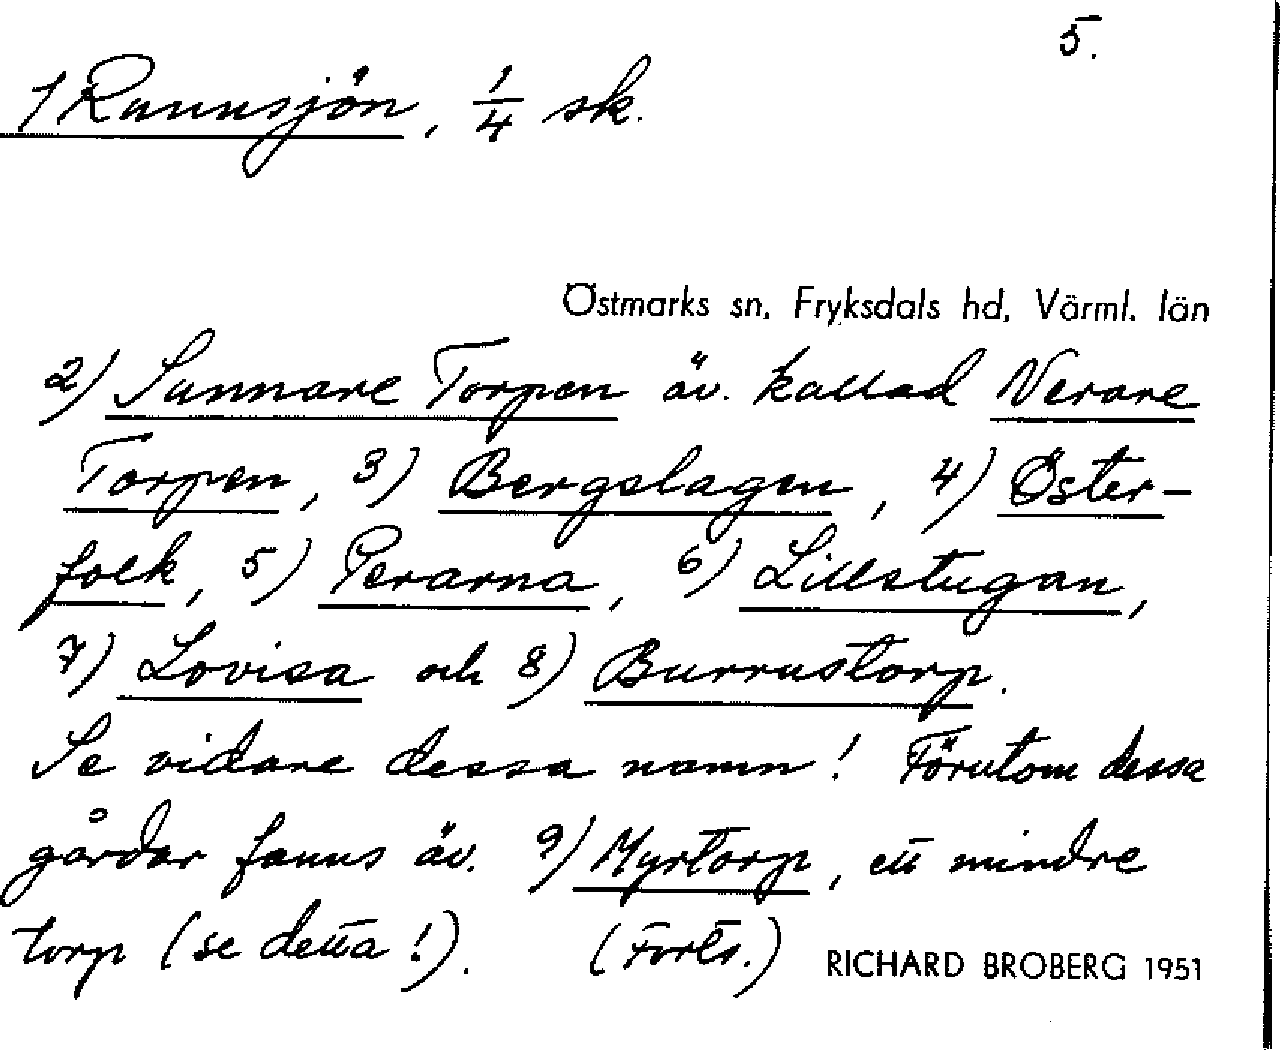 5.
1 Runnsjön, 1/4 sk.
Östmarks sn, Fryksdals hd, Värml. län
2) Sunnare Torpen äv. kallad Nerare
Torpen, 3) Bergslagen, 4) Öster-
folk, 5) Perarna, 6) Lillstugan,
7) Lovisa och 8) Burrustorp.
Se vidare dessa namn! Förutom dessa
gårdar fanns äv. 9) Myrtorp, ett mindre
torp (se detta!). (Forts.)
RICHARD BROBERG 1951